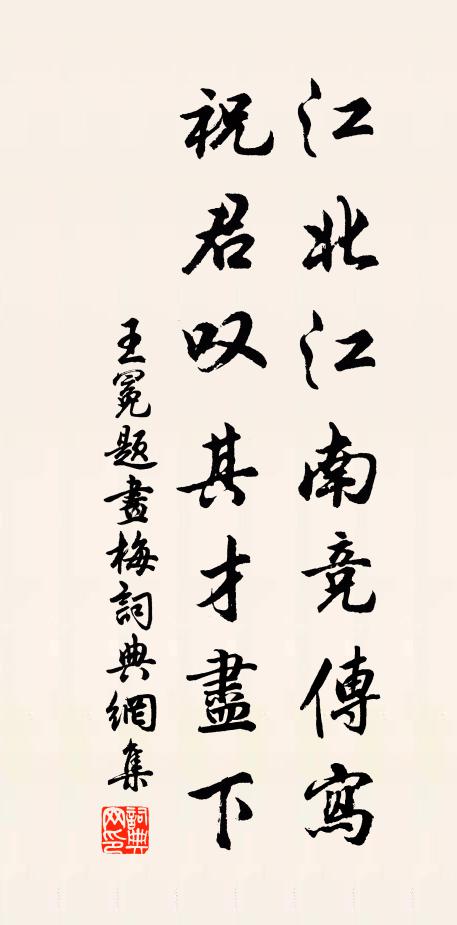 江北江南竞傳寫
祝君叹其才盡下
王冕題畫梅詞典網集
詞典網印